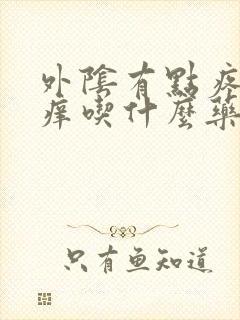 外陰有點疼
痒喫什麼藥
只有魚知道